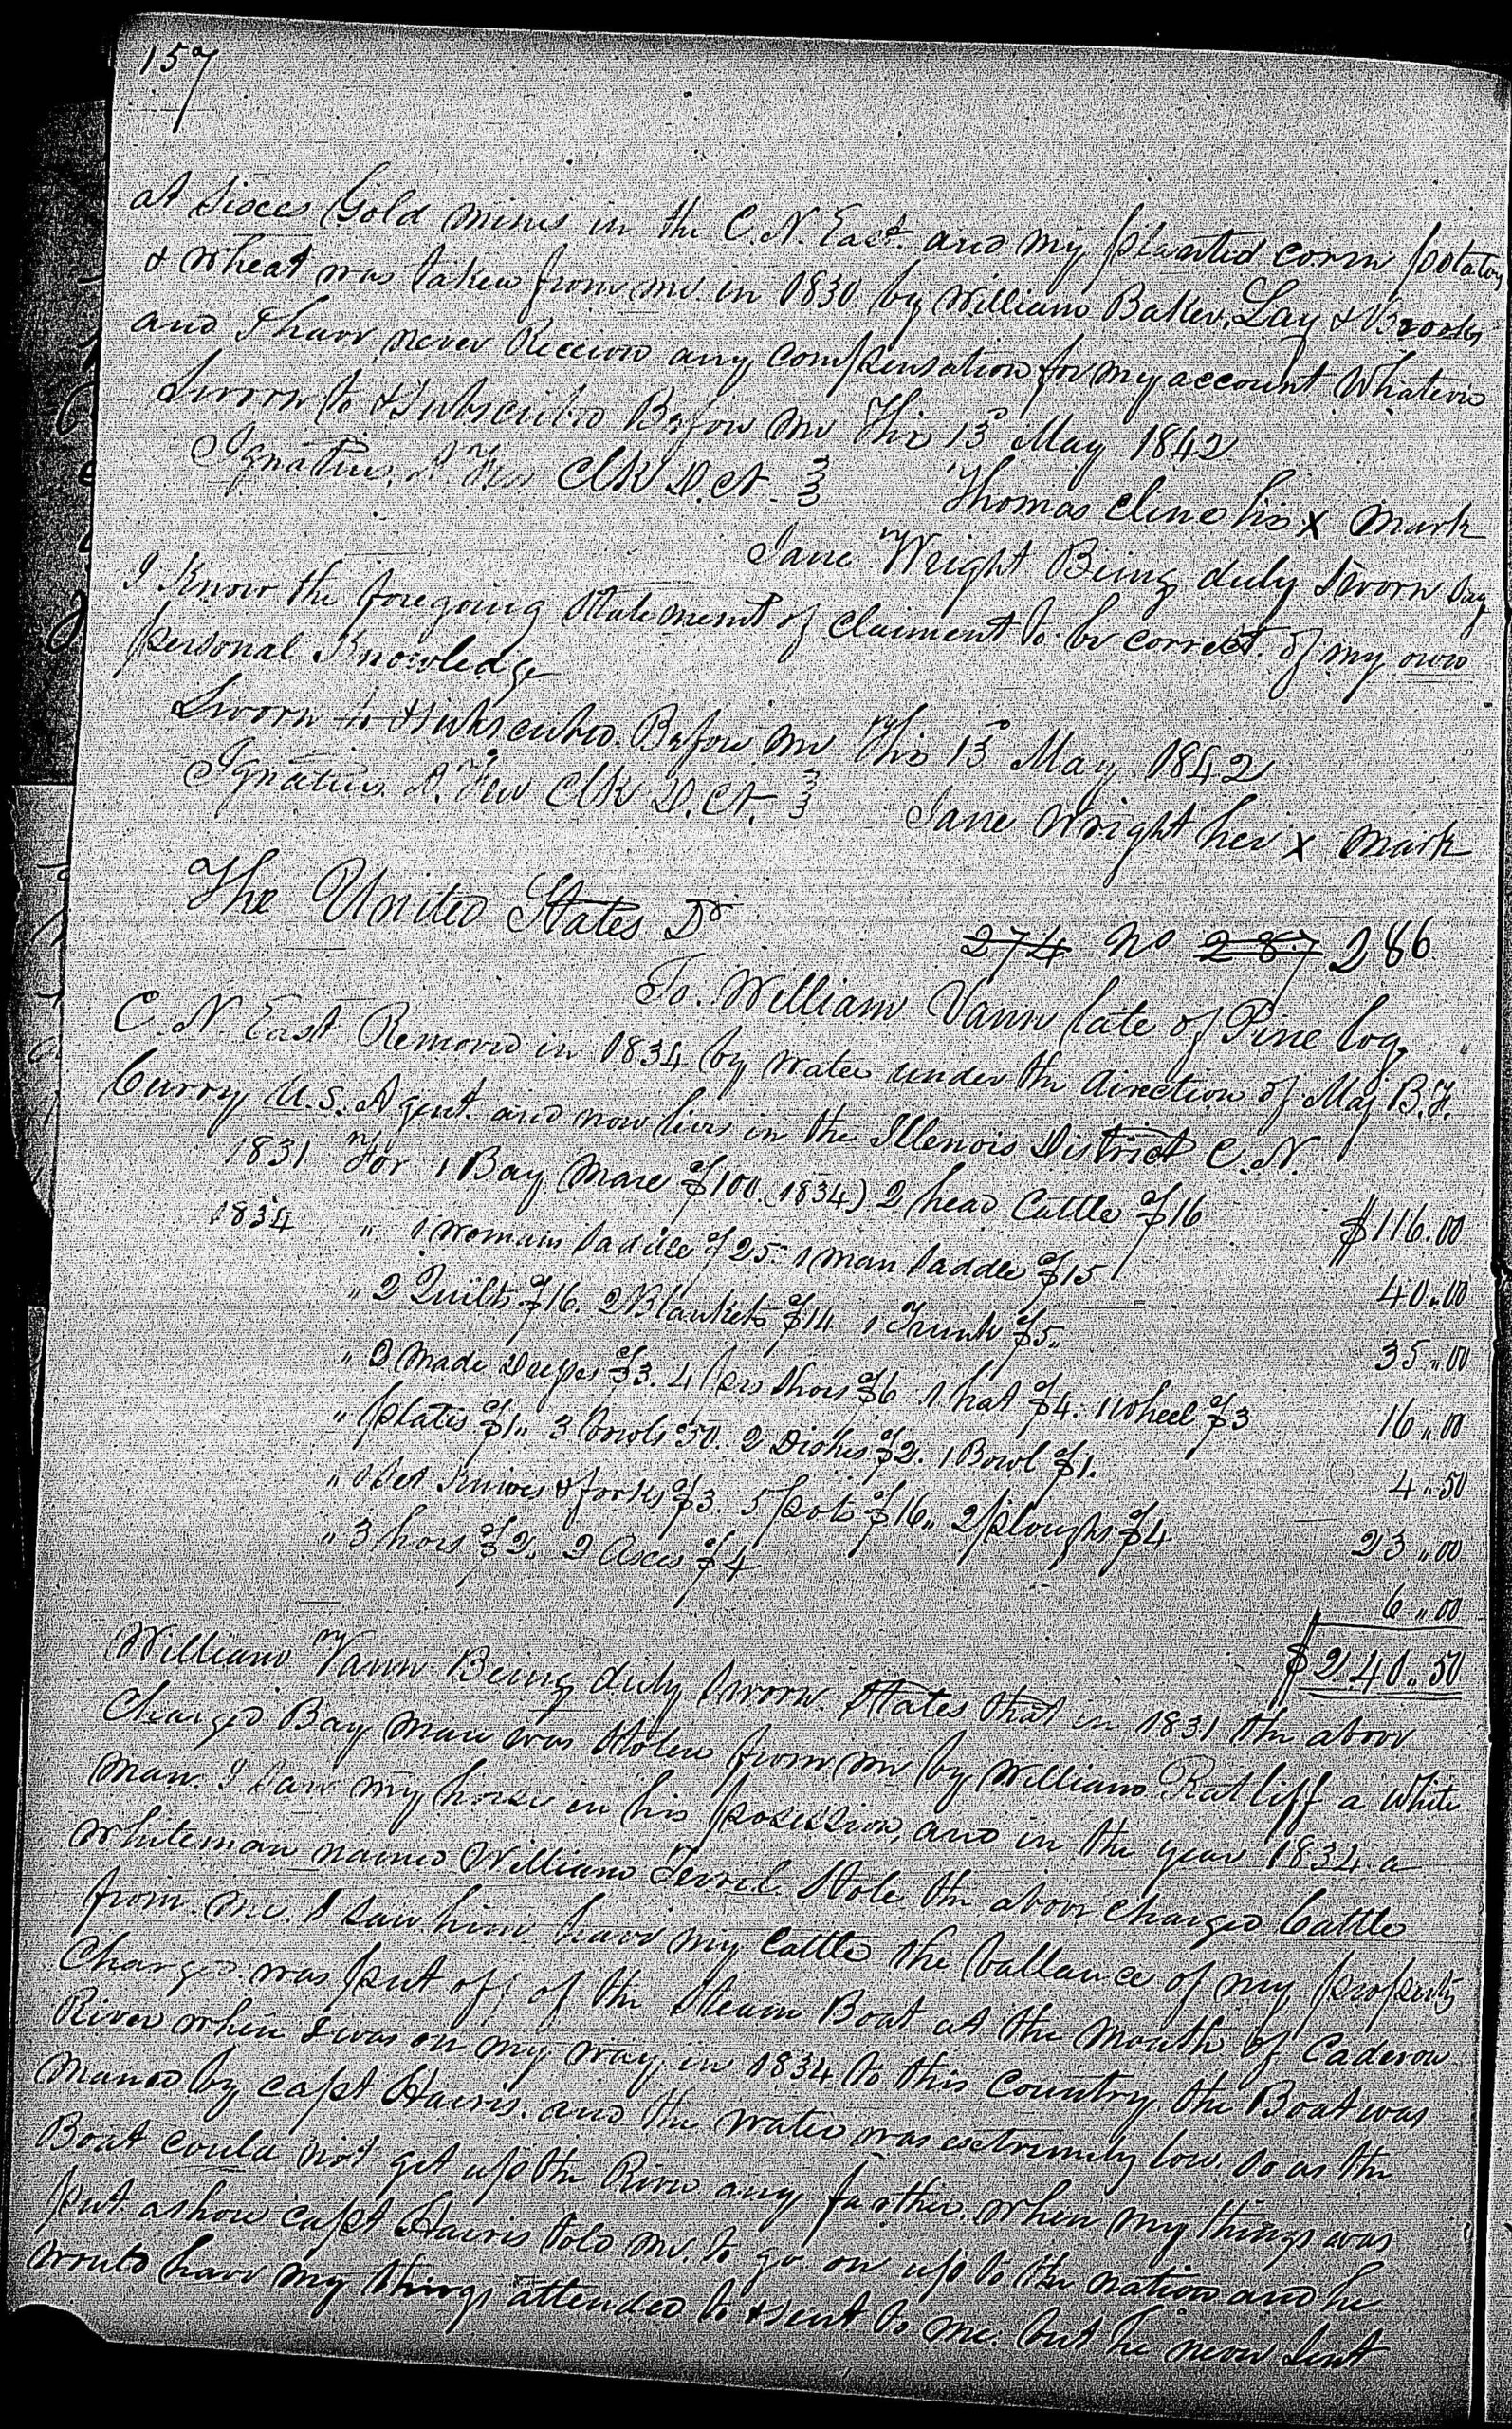 157
at Sixes Gold mines in the C.N. East. and my planted corn potatoes
& wheat was taken from me in 1830. by William Baker, Lay & Brooks
and I have never Receivd any compensation for my account Whatever
Sworn to & Subscribed Before me This 13th May 1842
Ignatius A. Few Clk D. Ct.
Thomas Cline his X Mark
Jane Wright Being duly Sworn Say
I Know the foregoing Statement of claiment to be correct of my own
personal Knowledge
Sworn to & subscribed Before me This 13th May 1842
Ignatius A. Few Clk D. Ct.
Jane Wright her X Mark
The United States Dr
274 No 287 286
To William Vann late of Pine log
C. N. East Removed in 1834 by water under the direction of Maj B.F.
Curry U.S. Agent and now lives in the Illenois District C.N.
1831 For 1 Bay Mare $100 (1834) 2 head Cattle $16 $116.00
1834 " 1 womans Saddle $25 1 man Saddle $15 40.00
" 2 Quilts $16. 2 Blankets $14 1 Trunk $5 35.00
" 3 made $3. 4 prs Shoes $6 1 hat $4. 1 Wheel $3 16.00
" plates $1. 3 bowls 50. 2 Dishes $2. 1 Bowl $1. 4.50
" 1 Set Knives & forks $3. 5 pots $16. 2 ploughs $4 23.00
" 3 hoes $2. 2 Axes $4 6.00
$240.50
William Vann Being duly Sworn States that in 1831 the above
Charged Bay mare was stolen from me by William Ratliff a White
man. I Saw my horse in his posession, and in the year 1834 a
whiteman named William Terril Stole the above charged Cattle
from me. I saw him have my Cattle the ballance of my property
Charged was put off of the Steam Boat at the mouth of Caderon
River when I was on my way in 1834 to this Country the Boat was
Maned by capt Harris. and the water was extremely low, so as the
Boat could not get up the River any further. when my things was
put ashore capt Harris told me to go on up to the nation and he
would have my things attended to & sent to me. but he never Sent